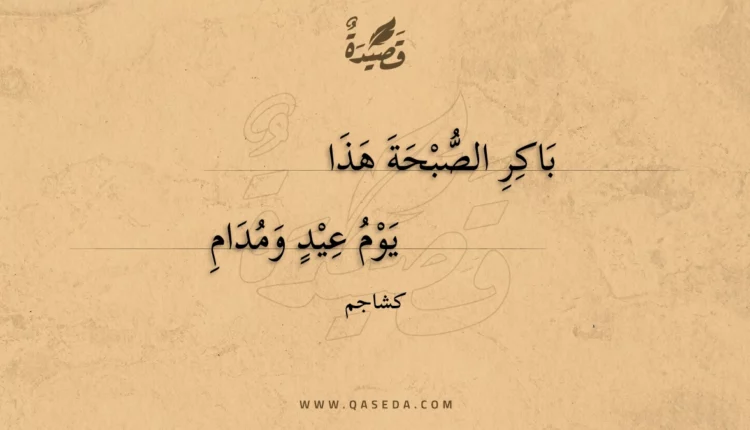 قَصِيدَةٌ
بَاكِرِ الصُّبْحَةَ هَذَا
يَوْمُ عِيْدٍ وَمُدَامِ
كشاجم
WWW.QASEDA.COM